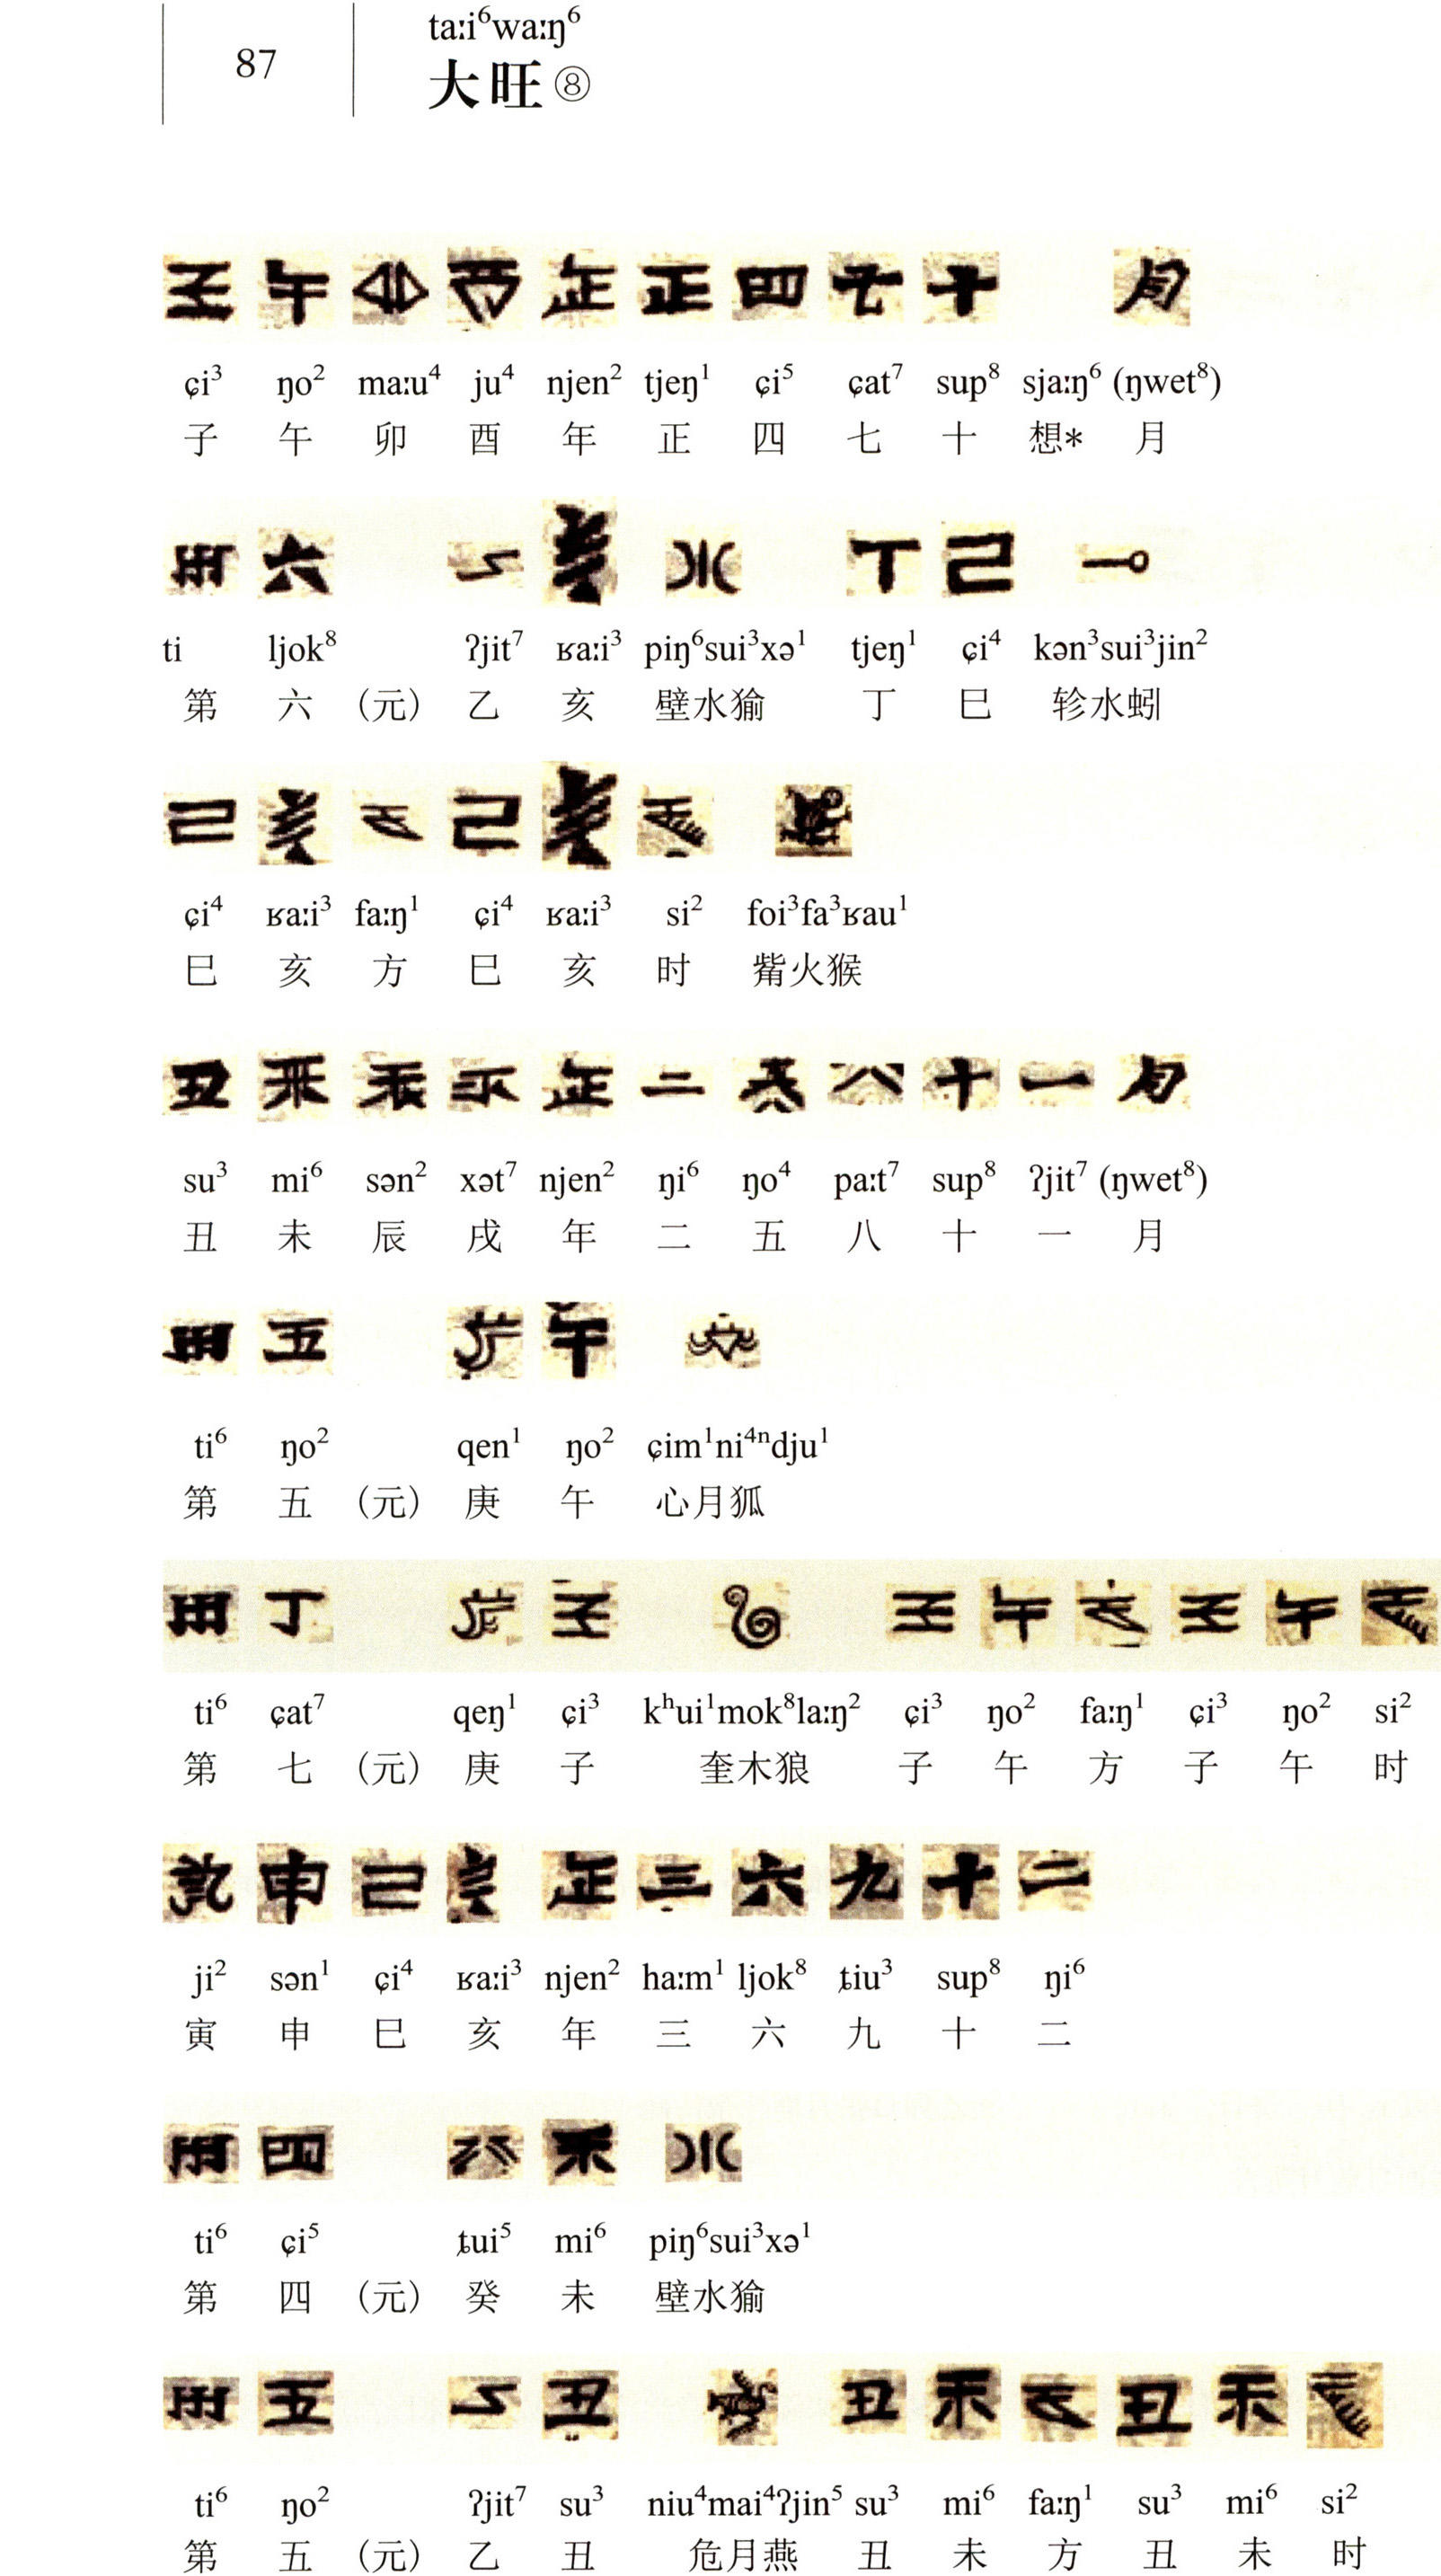 87
taːi⁶waːŋ⁶
大旺⑧
ɕi³ ŋo² maːu⁴ ju⁴ njen² tjeŋ¹ ɕi⁵ ɕat⁷ sup⁸ sjaːŋ⁶ (ŋwet⁸)
子 午 卯 酉 年 正 四 七 十 想* 月
ti ljok⁸ ʔjit⁷ ʁaːi³ piŋ⁶sui³xə¹ tjeŋ¹ ɕi⁴ kən³sui³jin²
第 六 （元） 乙 亥 壁水㺄 丁 巳 轸水蚓
ɕi⁴ ʁaːi³ faːŋ¹ ɕi⁴ ʁaːi³ si² foi³fa³ʁau¹
巳 亥 方 巳 亥 时 觜火猴
su³ mi⁶ sən² xət⁷ njen² ŋi⁶ ŋo⁴ paːt⁷ sup⁸ ʔjit⁷ (ŋwet⁸)
丑 未 辰 戌 年 二 五 八 十 一 月
ti⁶ ŋo² qen¹ ŋo² ɕim¹ni⁴ⁿdju¹
第 五 （元） 庚 午 心月狐
ti⁶ ɕat⁷ qeŋ¹ ɕi³ kʰui¹mok⁸laːŋ² ɕi³ ŋo² faːŋ¹ ɕi³ ŋo² si²
第 七 （元） 庚 子 奎木狼 子 午 方 子 午 时
ji² sən¹ ɕi⁴ ʁaːi³ njen² haːm¹ ljok⁸ ȶiu³ sup⁸ ŋi⁶
寅 申 巳 亥 年 三 六 九 十 二
ti⁶ ɕi⁵ ȶui⁵ mi⁶ piŋ⁶sui³xə¹
第 四 （元） 癸 未 壁水㺄
ti⁶ ŋo² ʔjit⁷ su³ niu⁴mai⁴ʔjin⁵ su³ mi⁶ faːŋ¹ su³ mi⁶ si²
第 五 （元） 乙 丑 危月燕 丑 未 方 丑 未 时